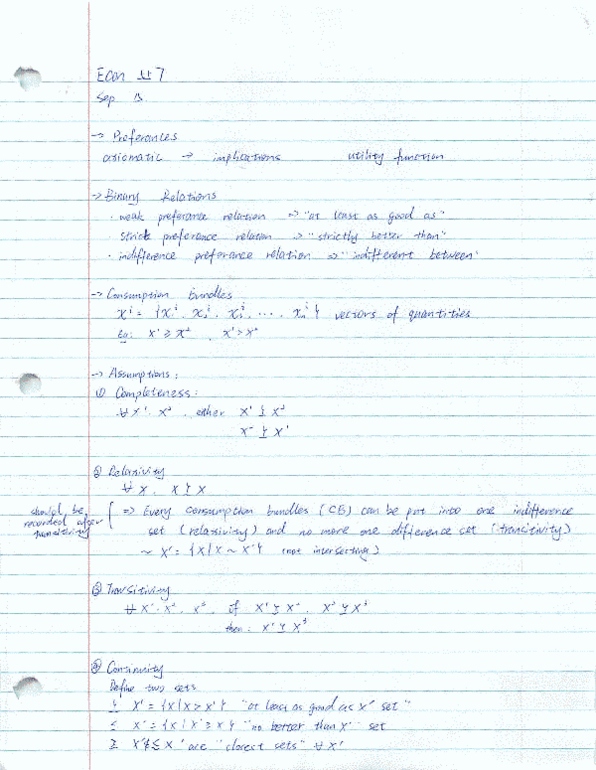 Econ #7
Sep 13
→ Preferances
axiomatic → implications utility function
→ Binary Relations
· weak preferance relation => "at least as good as"
· strick preferance relation => "strictly better than"
· indifference preferance relation => "indifferent between"
→ Consumption bundles
xⁱ = {x₁ⁱ, x₂ⁱ, x₃ⁱ, ... xₙⁱ} vectors of quantities
Eg: x¹ ≥ x² , x¹ > x²
→ Assumptions:
① Completeness:
∀ x¹, x², either x¹ ≿ x²
x² ≿ x¹
② Relaxivity
∀ x, x ≿ x
should be recorded after transitivity
[ => Every consumption bundles (CB) can be put into one indifference
set (relaxivity) and no more one difference set (transitivity)
~ x¹ = {x | x ~ x¹} (not intersecting)
③ Transitivity
∀ x¹, x², x³, if x¹ ≿ x², x² ≿ x³
then x¹ ≿ x³
④ Continuity
Define two sets
≿ x¹ = {x | x ≥ x¹} "at least as good as x¹ set"
≤ x¹ = {x | x¹ ≥ x} "no better than x¹" set
≥ x¹ & ≤ x¹ are "closet sets" ∀ x¹